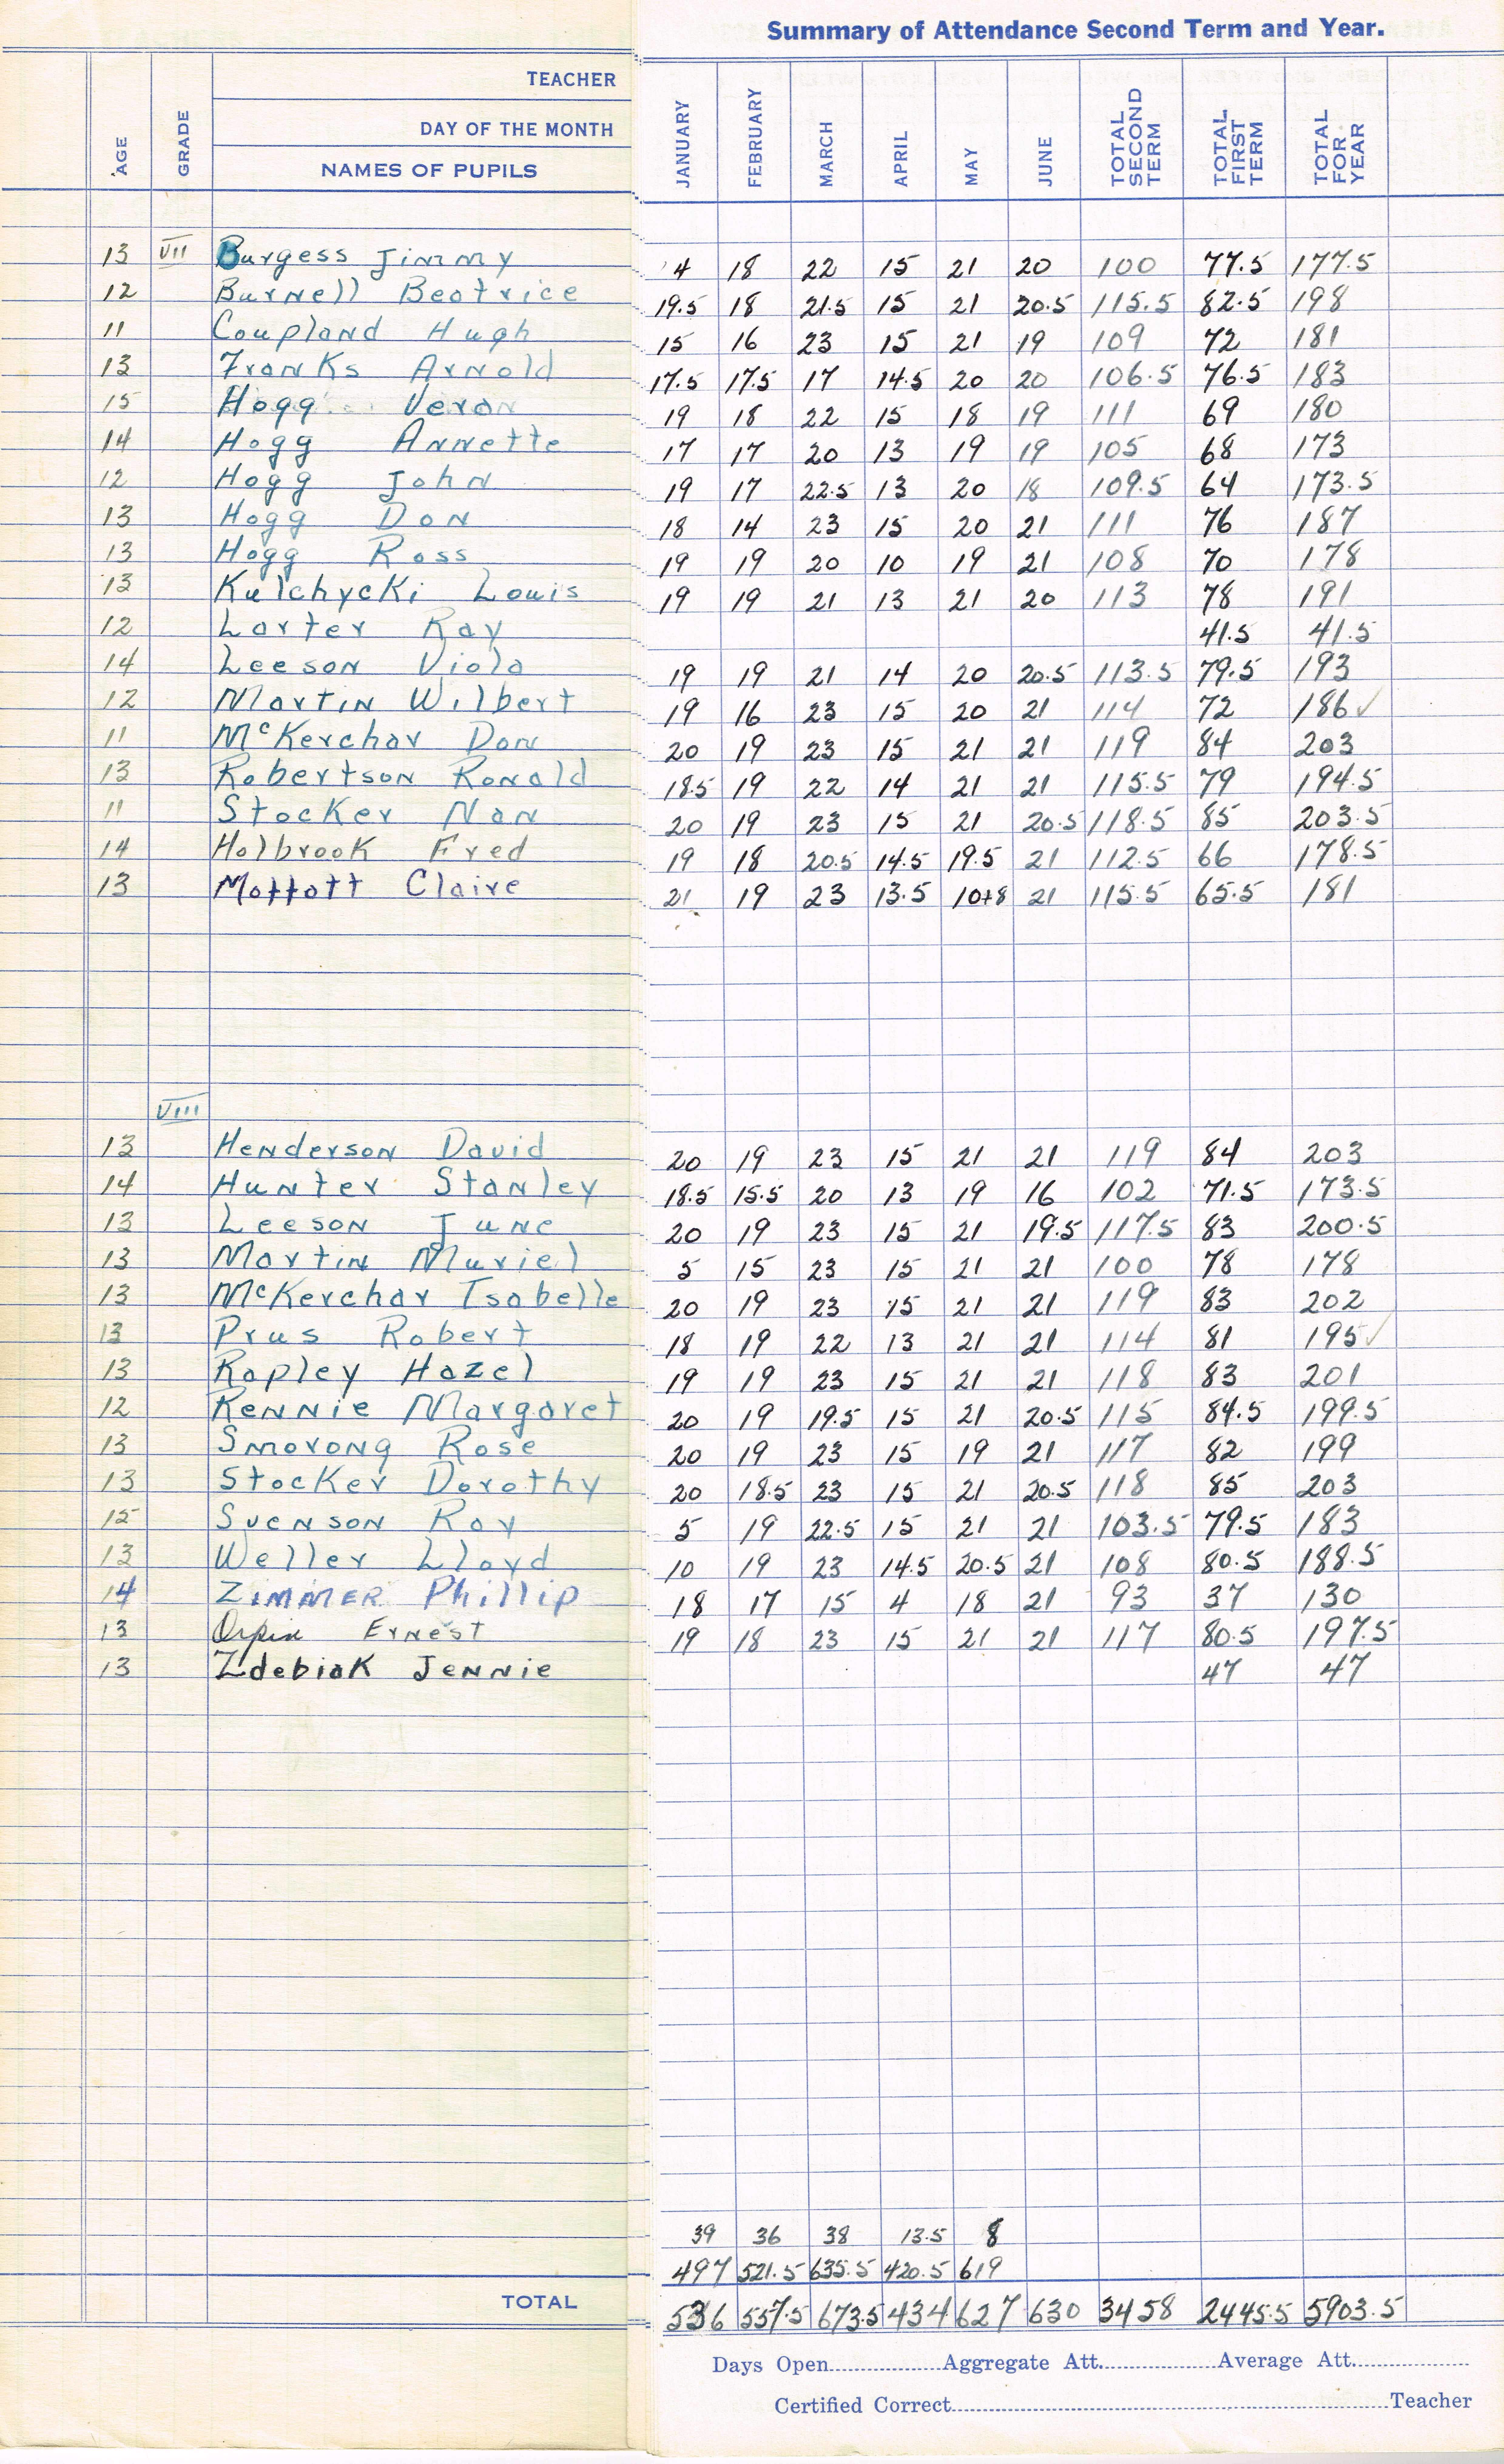 Summary of Attendance Second Term and Year.
TEACHER
DAY OF THE MONTH
AGE GRADE NAMES OF PUPILS JANUARY FEBRUARY MARCH APRIL MAY JUNE TOTAL SECOND TERM TOTAL FIRST TERM TOTAL FOR YEAR
13 VII Burgess Jimmy 4 18 22 15 21 20 100 77.5 177.5
12 Burnell Beatrice 19.5 18 21.5 15 21 20.5 115.5 82.5 198
11 Coupland Hugh 15 16 23 15 21 19 109 72 181
13 Franks Arnold 17.5 17.5 17 14.5 20 20 106.5 76.5 183
15 Hogg Veron 19 18 22 15 18 19 111 69 180
14 Hogg Annette 17 17 20 13 19 19 105 68 173
12 Hogg John 19 17 22.5 13 20 18 109.5 64 173.5
13 Hogg Don 18 14 23 15 20 21 111 76 187
13 Hogg Ross 19 19 20 10 19 21 108 70 178
13 Kulchycki Louis 19 19 21 13 21 20 113 78 191
12 Larter Ray 41.5 41.5
14 Leeson Viola 19 19 21 14 20 20.5 113.5 79.5 193
12 Martin Wilbert 19 16 23 15 20 21 114 72 186✓
11 McKerchar Don 20 19 23 15 21 21 119 84 203
13 Robertson Ronald 18.5 19 22 14 21 21 115.5 79 194.5
11 Stocker Nan 20 19 23 15 21 20.5 118.5 85 203.5
14 Holbrook Fred 19 18 20.5 14.5 19.5 21 112.5 66 178.5
13 Moffatt Claire 21 19 23 13.5 10+8 21 115.5 65.5 181
VIII
13 Henderson David 20 19 23 15 21 21 119 84 203
14 Hunter Stanley 18.5 15.5 20 13 19 16 102 71.5 173.5
13 Leeson June 20 19 23 15 21 19.5 117.5 83 200.5
13 Martin Muriel 5 15 23 15 21 21 100 78 178
13 McKerchar Isabelle 20 19 23 15 21 21 119 83 202
13 Prus Robert 18 19 22 13 21 21 114 81 195✓
13 Rapley Hazel 19 19 23 15 21 21 118 83 201
12 Rennie Margaret 20 19 19.5 15 21 20.5 115 84.5 199.5
13 Smorong Rose 20 19 23 15 19 21 117 82 199
13 Stocker Dorothy 20 18.5 23 15 21 20.5 118 85 203
15 Svenson Roy 5 19 22.5 15 21 21 103.5 79.5 183
13 Weller Lloyd 10 19 23 14.5 20.5 21 108 80.5 188.5
14 Zimmer Phillip 18 17 15 4 18 21 93 37 130
13 Orpin Ernest 19 18 23 15 21 21 117 80.5 197.5
13 Zdebiak Jennie 47 47
39 36 38 13.5 8
497 521.5 635.5 420.5 619
TOTAL 536 557.5 673.5 434 627 630 3458 2445.5 5903.5
Days Open Aggregate Att. Average Att.
Certified Correct Teacher